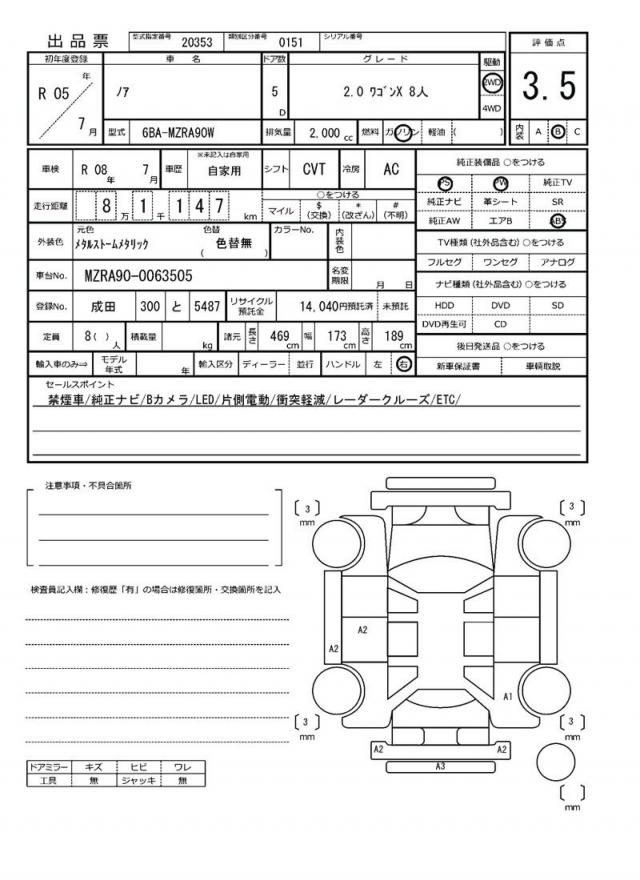 出品票 型式指定番号 20353 類別区分番号 0151 シリアル番号
初年度登録 車名 ドア数 グレード 駆動 評価点
R 05 年 7 月 ノア 5 D 2.0 ワゴンX 8人 2WD 4WD 3.5
型式 6BA-MZRA90W 排気量 2,000 cc 燃料 ガソリン 軽油 ( ) 内装 A B C
車検 R 08 年 7 月 車歴 ※未記入は自家用 自家用 シフト CVT 冷房 AC 純正装備品 ○をつける
PS PW 純正TV
走行距離 8 万 1 千 1 4 7 km ○をつける マイル $ (交換) * (改ざん) # (不明) 純正ナビ 革シート SR
純正AW エアB ABS
外装色 元色 メタルストームメタリック 色替 ( 色替無 ) カラーNo. 内装色 TV種類 (社外品含む) ○をつける
フルセグ ワンセグ アナログ
車台No. MZRA90-0063505 名変期限 月 日 ナビ種類 (社外品含む) ○をつける
登録No. 成田 300 と 5487 リサイクル預託金 14,040円預託済 未預託 HDD DVD SD
DVD再生可 CD
定員 8( ) 人 積載量 kg 諸元 長さ 469 cm 幅 173 cm 高さ 189 cm 後日発送品 ○をつける
輸入車のみ⇒ モデル年式 年 輸入区分 ディーラー 並行 ハンドル 左 右 新車保証書 車輌取説
セールスポイント
禁煙車/純正ナビ/Bカメラ/LED/片側電動/衝突軽減/レーダークルーズ/ETC/
注意事項・不具合箇所
検査員記入欄:修復歴「有」の場合は修復箇所・交換箇所を記入
3 mm 3 mm
A2
A2
A1
3 mm 3 mm
A2 A2
A3
mm
ドアミラー キズ ヒビ ワレ
工具 無 ジャッキ 無